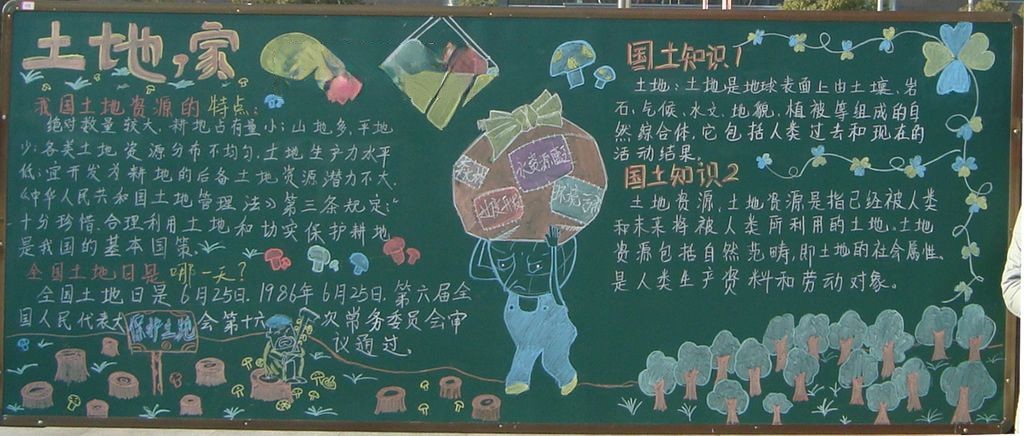 土地,家
我国土地资源的特点:
绝对数量较大,耕地占有量小;山地多,平地
少;各类土地资源分布不均匀,土地生产力水平
低;宜开发为耕地的后备土地资源潜力不大.
《中华人民共和国土地管理法》第三条规定:"
十分珍惜、合理利用土地和切实保护耕地
是我国的基本国策.
全国土地日是哪一天?
全国土地日是6月25日.1986年6月25日.第六届全
国人民代表大会第十六次常务委员会审
议通过.
保护土地
水资源
国土知识1
土地:土地是地球表面上由土壤、岩
石、气候、水文、地貌、植被等组成的自
然综合体,它包括人类过去和现在的
活动结果。
国土知识2
土地资源,土地资源是指已经被人类
和未来将被人类所利用的土地。土地
资源包括自然范畴,即土地的社会属性、
是人类生产资料和劳动对象。